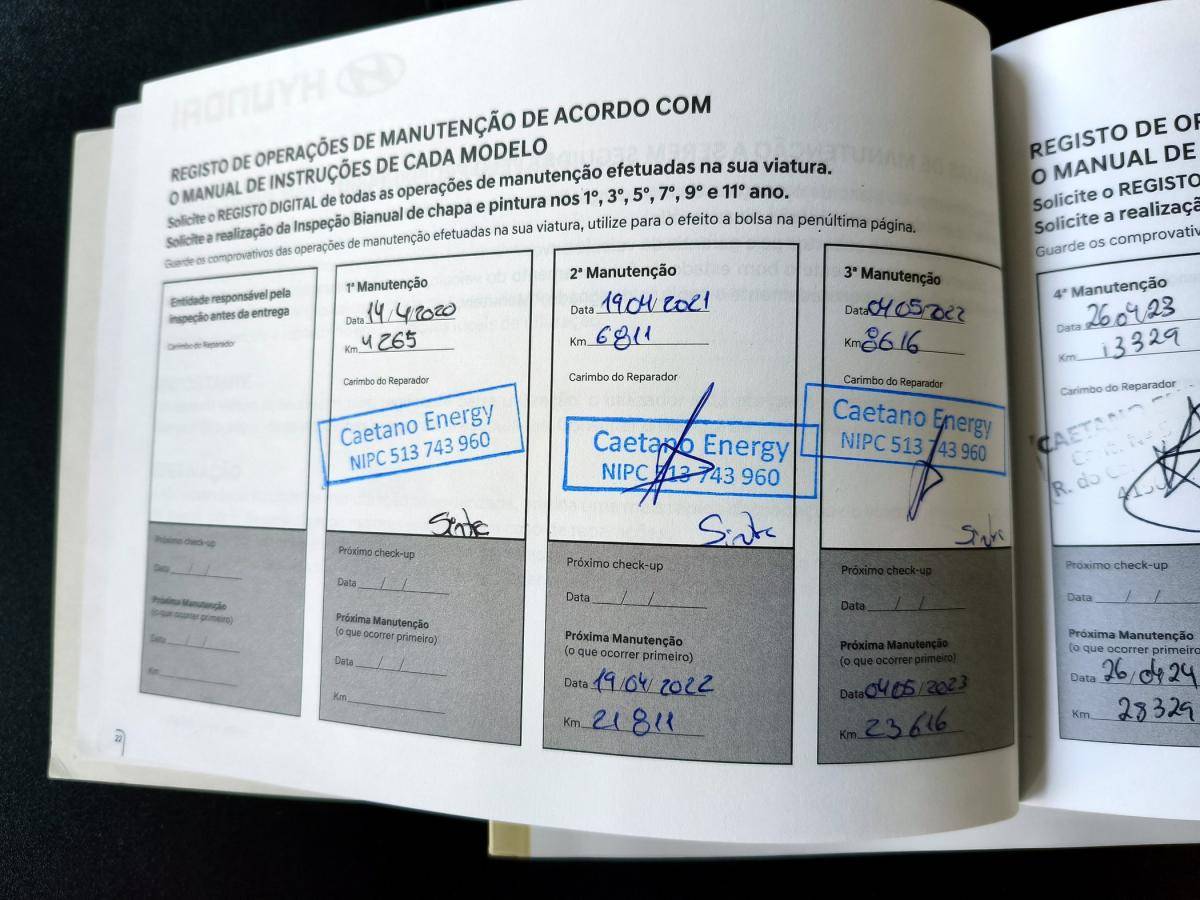 REGISTO DE OPERAÇÕES DE MANUTENÇÃO DE ACORDO COM
O MANUAL DE INSTRUÇÕES DE CADA MODELO
Solicite o REGISTO DIGITAL de todas as operações de manutenção efetuadas na sua viatura.
Solicite a realização da Inspeção Bianual de chapa e pintura nos 1º, 3º, 5º, 7º, 9º e 11º ano.
Guarde os comprovativos das operações de manutenção efetuadas na sua viatura, utilize para o efeito a bolsa na penúltima página.
Entidade responsável pela
inspeção antes da entrega
Carimbo do Reparador
Próximo check-up
Data / /
Próxima Manutenção
(o que ocorrer primeiro)
Data / /
Km
22
1ª Manutenção
Data 14/4/2020
Km 4265
Carimbo do Reparador
Caetano Energy
NIPC 513 743 960
Sintra
Próximo check-up
Data / /
Próxima Manutenção
(o que ocorrer primeiro)
Data / /
Km
2ª Manutenção
Data 19/04/2021
Km 6811
Carimbo do Reparador
Caetano Energy
NIPC 513 743 960
Sintra
Próximo check-up
Data / /
Próxima Manutenção
(o que ocorrer primeiro)
Data 19/04/2022
Km 21811
3ª Manutenção
Data 04/05/2022
Km 8616
Carimbo do Reparador
Caetano Energy
NIPC 513 743 960
Sintra
Próximo check-up
Data / /
Próxima Manutenção
(o que ocorrer primeiro)
Data 04/05/2023
Km 23616
REGISTO DE OP
O MANUAL DE
Solicite o REGISTO
Solicite a realizaçã
Guarde os comprovativ
4ª Manutenção
Data 26/04/23
Km 13329
Carimbo do Reparador
CAETANO
R. do
Próximo check-up
Data / /
Próxima Manutenção
(o que ocorrer primeiro)
Data 26/04/24
Km 28329